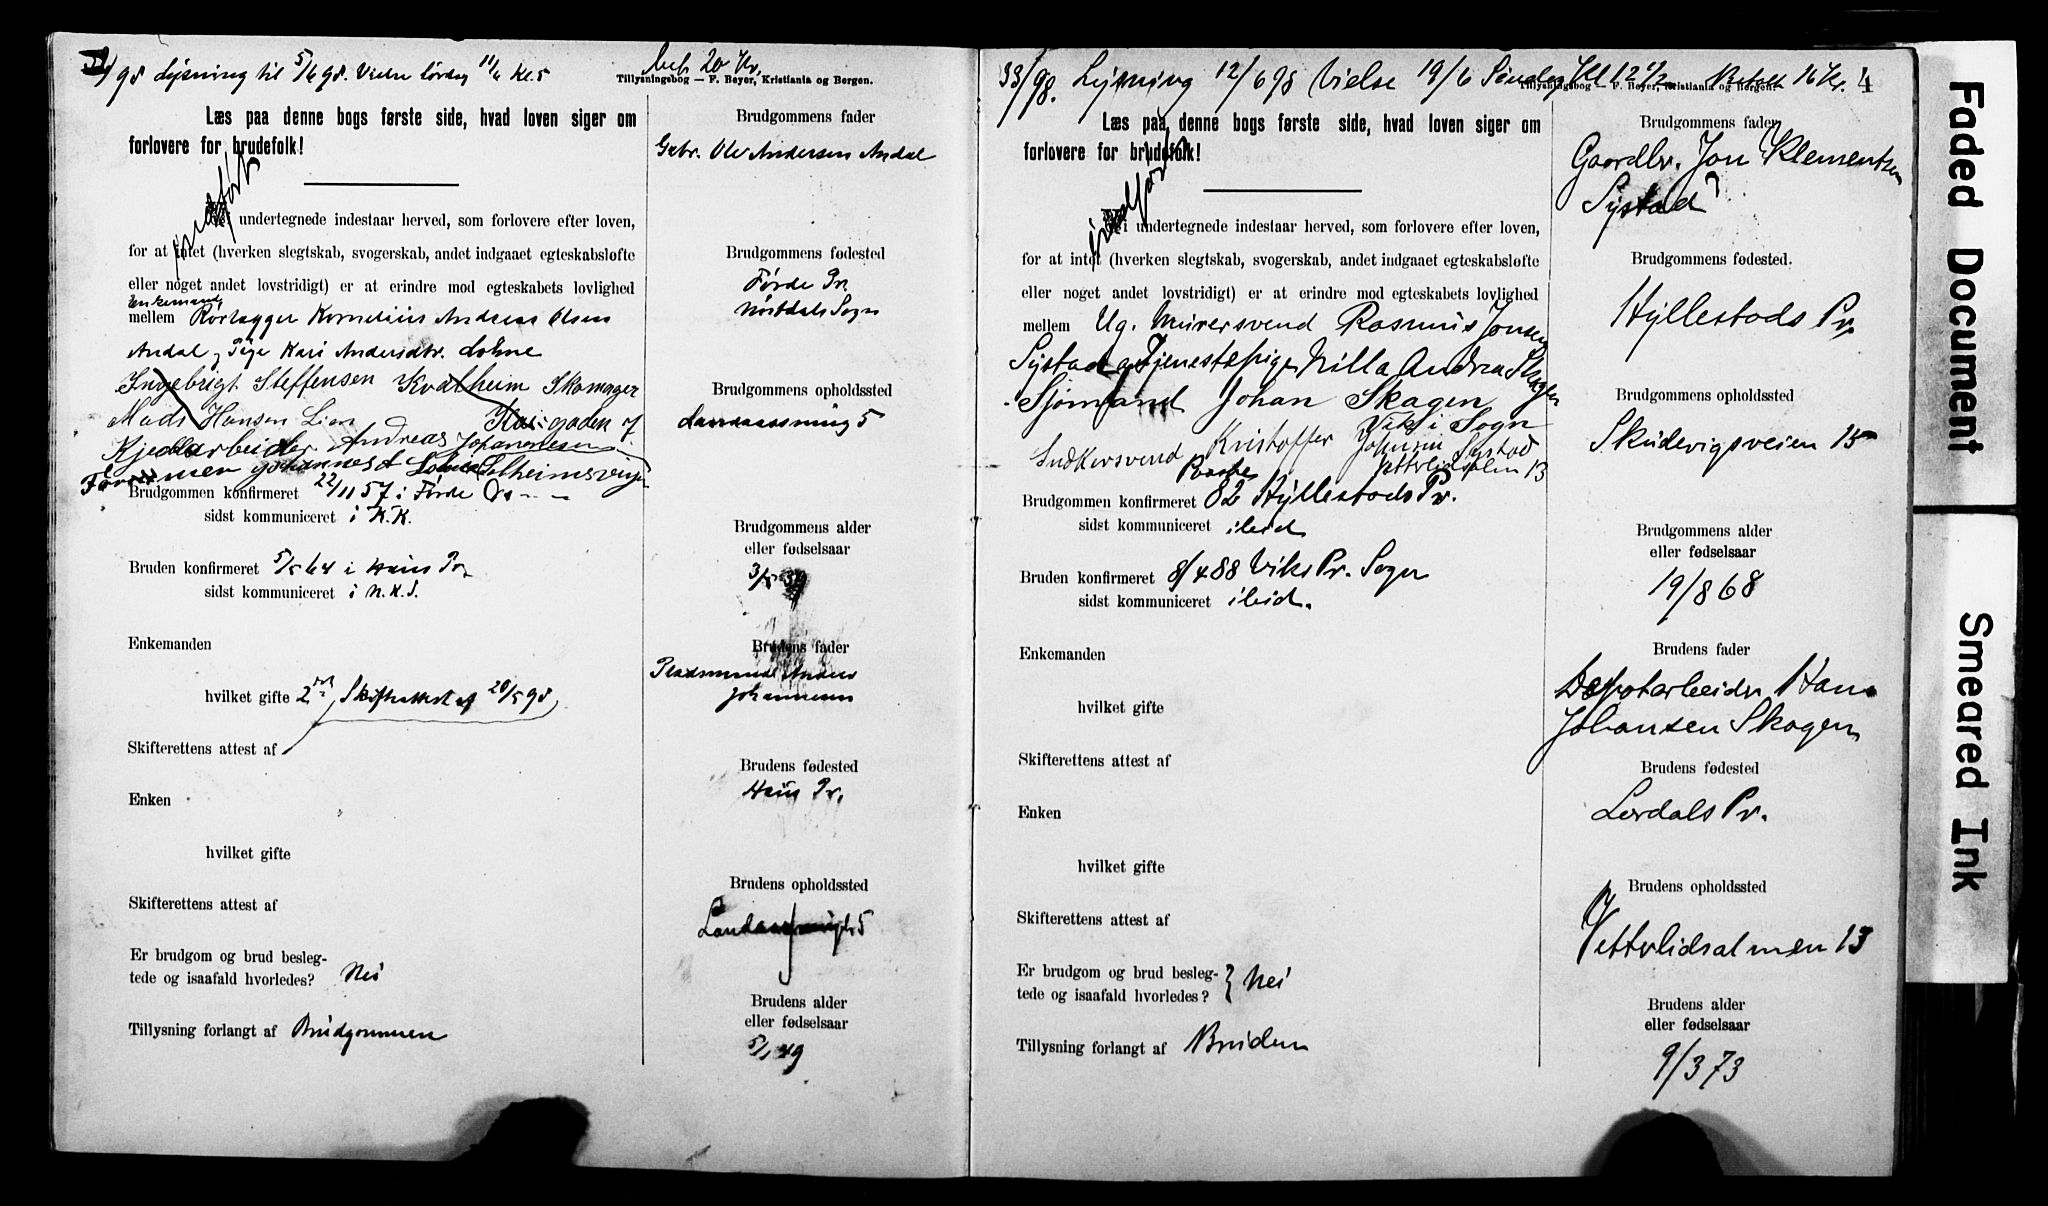 98 Lysning til 5/6 98. Vielse lørdag 11/6 Kl. 5
bet. 20 Kr.
Tillysningsbog — F. Beyer, Kristiania og Bergen.
Læs paa denne bogs første side, hvad loven siger om
forlovere for brudefolk!
indført
undertegnede indestaar herved, som forlovere efter loven,
for at intet (hverken slegtskab, svogerskab, andet indgaaet egteskabsløfte
eller noget andet lovstridigt) er at erindre mod egteskabets lovlighed
Enkemand
mellem Rørlægger Kornelius Andreas Olsen
Andal og Pige Kari Andersdtr. Lohne
Ingebrigt Steffensen Kvalheim Skomager
Mads Hansen Lien
Kjedlarbeider Andreas Johannesen
Formmer Johannes
Brudgommen konfirmeret 22/11 57 i Førde Pr
sidst kommuniceret i K.K.
Bruden konfirmeret 5/5 64 i Haus Pr
sidst kommuniceret i N.K.S.
Enkemanden
hvilket gifte 2det Skifteattest af 20/5 98
Skifterettens attest af
Enken
hvilket gifte
Skifterettens attest af
Er brudgom og brud besleg-
tede og isaafald hvorledes? Nei
Tillysning forlangt af Brudgommen
Brudgommens fader
Gbr. Ole Andersen Andal
Brudgommens fødested
Førde Pr.
Brudgommens opholdssted
5
Brudgommens alder
eller fødselsaar
3/5 39
Brudens fader
Pladsmand Anders
Johannesen
Brudens fødested
Haus Pr.
Brudens opholdssted
5
Brudens alder
eller fødselsaar
5/1 49
33/98. Lysning 12/6 98 Vielse 19/6 Søndag Kl 12 1/2 Betalt 16 Kr. 4
Tillysningsbog — F. Beyer, Kristiania og Bergen.
Læs paa denne bogs første side, hvad loven siger om
forlovere for brudefolk!
indført
Vi undertegnede indestaar herved, som forlovere efter loven,
for at intet (hverken slegtskab, svogerskab, andet indgaaet egteskabsløfte
eller noget andet lovstridigt) er at erindre mod egteskabets lovlighed
mellem Ug. Murersvend Rasmus Jonsen
Systad og Tjenestepige Nilla Andrea Skagen
Sjømand Johan Skagen
Vik i Sogn
Snedkersvend Kristoffer Johnsen Systad
Vetterlidsalm 13
Brudgommen konfirmeret 82 Hyllestads Pr.
sidst kommuniceret ibid
Bruden konfirmeret 8/4 88 Viks Pr. Sogn
sidst kommuniceret ibid.
Enkemanden
hvilket gifte
Skifterettens attest af
Enken
hvilket gifte
Skifterettens attest af
Er brudgom og brud besleg-
tede og isaafald hvorledes? } Nei
Tillysning forlangt af Bruden
Brudgommens fader
Gaardbr. Jon Klementsen
Systad
Brudgommens fødested.
Hyllestads Pr.
Brudgommens opholdssted
Skudevigsveien 15
Brudgommens alder
eller fødselsaar
19/8 68
Brudens fader
Depotarbeider Hans
Johansen Skagen
Brudens fødested
Lerdals Pr.
Brudens opholdssted
Vetterlidsalmen 13
Brudens alder
eller fødselsaar
9/3 73
Faded Document
Smeared Ink